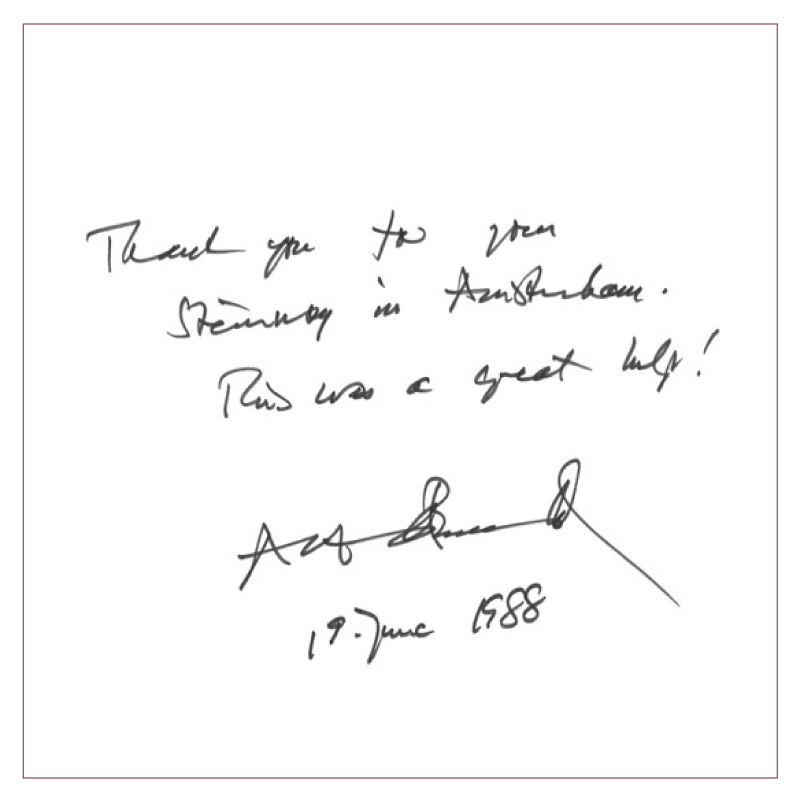 Thank you to your
Steinway in Amsterdam.
This was a great help!
19. June 1988